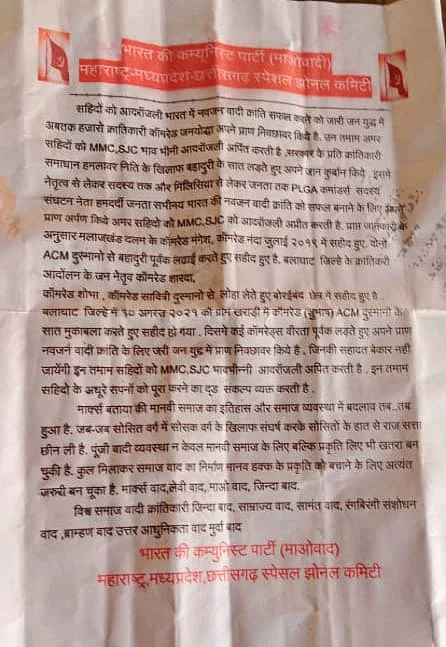 भारत की कम्युनिस्ट पार्टी (माओवादी)
महाराष्ट्र-मध्यप्रदेश-छत्तीसगढ़ स्पेशल झोनल कमिटी
सहिदों को आदरॉजली भारत में नवजन वादी क्रांति सफल करने को जारी जन युद्ध में
अबतक हजारो क्रांतिकारी कॉमरेड जनयोद्धा अपने प्राण निवछावर किये है. उन तमाम अमर
सहिदों को MMC,SJC भाव भीनी आदरॉजली अर्पित करती है .सरकार के प्रति क्रांतिकारी
समाधान हमलावर निति के खिलाफ बहादुरी के सात लडते हुए अपने जान कुर्बान किये . इसमे
नेतृत्व से लेकर सदस्य तक और मिलिसिया से लेकर जनता तक PLGA कमांडर्स सदस्य
संघटन नेता हमदर्दी जनता सभीनय भारत की नवजन वादी क्रांती को सफल बनाने के लिए
प्राण अर्पण किये अमर सहिदों को MMC,SJC को आदरॉजली अप्रीत करती है. प्राप्त जानकारी के
अनुसार मलाजखंड दलम के कॉमरेड मंगेश, कॉमरेड नंदा जुलाई २०१९ में सहीद हुए. दोनो
ACM दुस्मानो से बहादुरी पूर्वक लढाई करते हुए सहीद हुए है. बलाघाट जिल्हे के क्रांतिकरी
आदोलन के जन नेतृव कॉमरेड शारदा,
कॉमरेड शोभा , कॉमरेड सावित्री दुस्मानो से लोहा लेते हुए बोरईबंद छेत्र में सहीद हुए है .
बलाघाट जिल्हे में १० अगस्ट २०२१ को ग्राम खराडी में कॉमरेड (शुभाष) ACM दुस्मानो के
सात मुकाबला करते हुए सहीद हो गया . दिसमे कई कॉमरेड्स वीरता पूर्वक लड्ते हुए अपने प्राण
नवजनं वादी क्रांति के लिए जरी जन युद्ध में प्राण निवछावर किये है , जिनकी सहादत बेकार नही
जायेंगी इन तमाम सहिदों को MMC,SJC भावभीन्नी आदरॉजली अर्पित करती है . इन तमाम
सहिदों के अधूरे सपनों को पूरा करने का दड सकल्प व्यक्त करती है .
मार्क्स बताया की मानवी समाज का इतिहास और समाज व्यवस्था में बदलाव तब..तब
हुओं है. जब-जब सोसित वर्ग में सोसक वर्ग के खिलाफ संघर्ष करके सोसितों के हात से राज सत्ता
छीन ली है. पूंजी वादी व्यवस्था न केवल मानवी समाज के लिए बल्कि प्रकृति लिए भी खतरा बन
चुकी है. कुल मिलाकर समाज वाद का निर्माण मानव हक्क के प्रकृति को बचाने के लिए अत्यंत
जरुरी बन चूका है. मार्क्स वाद,लेवी वाद, माओ वाद, जिन्दा बाद.
विश्व समाज वादी क्रांतिकारी जिन्दा बाद, साम्राज्य वाद, सामंत वाद, रंगबिरंगी संशोधन
वाद ,ब्राम्हण वाद उत्तर आधुनिकता वाद मुर्दा बाद
भारत की कम्युनिस्ट पार्टी (माओवाद)
महाराष्ट्र,मध्यप्रदेश,छत्तीसगढ़ स्पेसल झोनल कमिटी